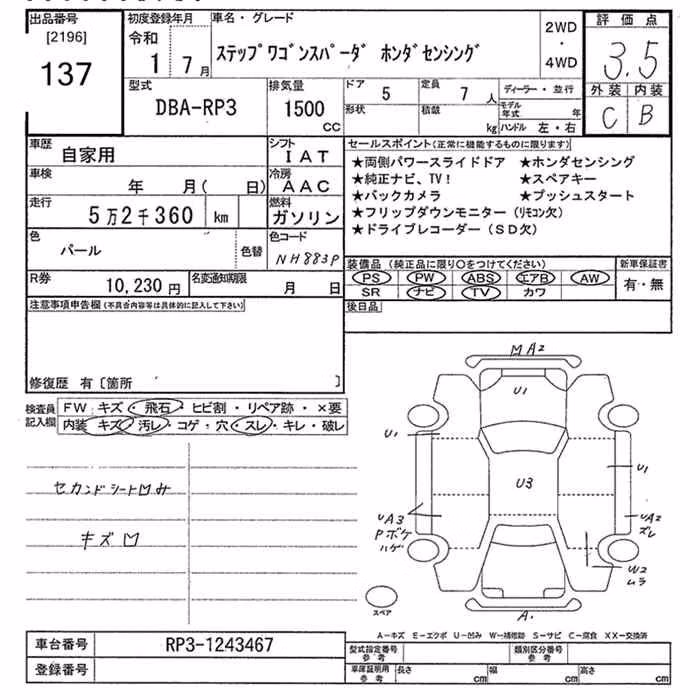 出品番号 初度登録年月 車名・グレード 2WD 評価点
[2196] 令和 ・
137 1 7月 ステップワゴンスパーダ ホンダセンシング 4WD 3.5
型式 排気量 ドア 5 定員 7人 ディーラー・並行 外装 内装
DBA-RP3 1500 cc 形状 積載 kg モデル年式 年 ハンドル 左・右 C B
車歴 自家用 シフト IAT セールスポイント(正常に機能するものに限ります)
車検 年 月( 日) 冷房 AAC
★両側パワースライドドア ★ホンダセンシング
★純正ナビ、TV! ★スペアキー
★バックカメラ ★プッシュスタート
★フリップダウンモニター(リモコン欠)
★ドライブレコーダー(SD欠)
走行 5万2千360 km 燃料 ガソリン
色 パール 色替 色コード NH883P
装備品(純正品に限り○をつけてください) 新車保証書
R券 10,230円 名変通知期限 月 日
PS PW ABS エアB AW 有・無
SR ナビ TV カワ
注意事項申告欄(不具合内容等は具体的に記入して下さい) 後日品
修復歴 有〔箇所 〕
検査員 FW キズ・飛石・ヒビ割・リペア跡・×要
記入欄 内装 キズ・汚レ・コゲ・穴・スレ・キレ・破レ
セカンドシート凹み
キズ凹
MA2
U1
U1
U1
U3
UA3
Pボケ
ハゲ
UA2
ズレ
W2
ムラ
スペア
A.
A-キズ E-エクボ U-凹み W-補修跡 S-サビ C-腐食 XX-交換済
車台番号 RP3-1243467 型式指定番号 参考 類別区分番号 参考
登録番号 車庫証明用 参考 長さ cm 幅 cm 高さ cm